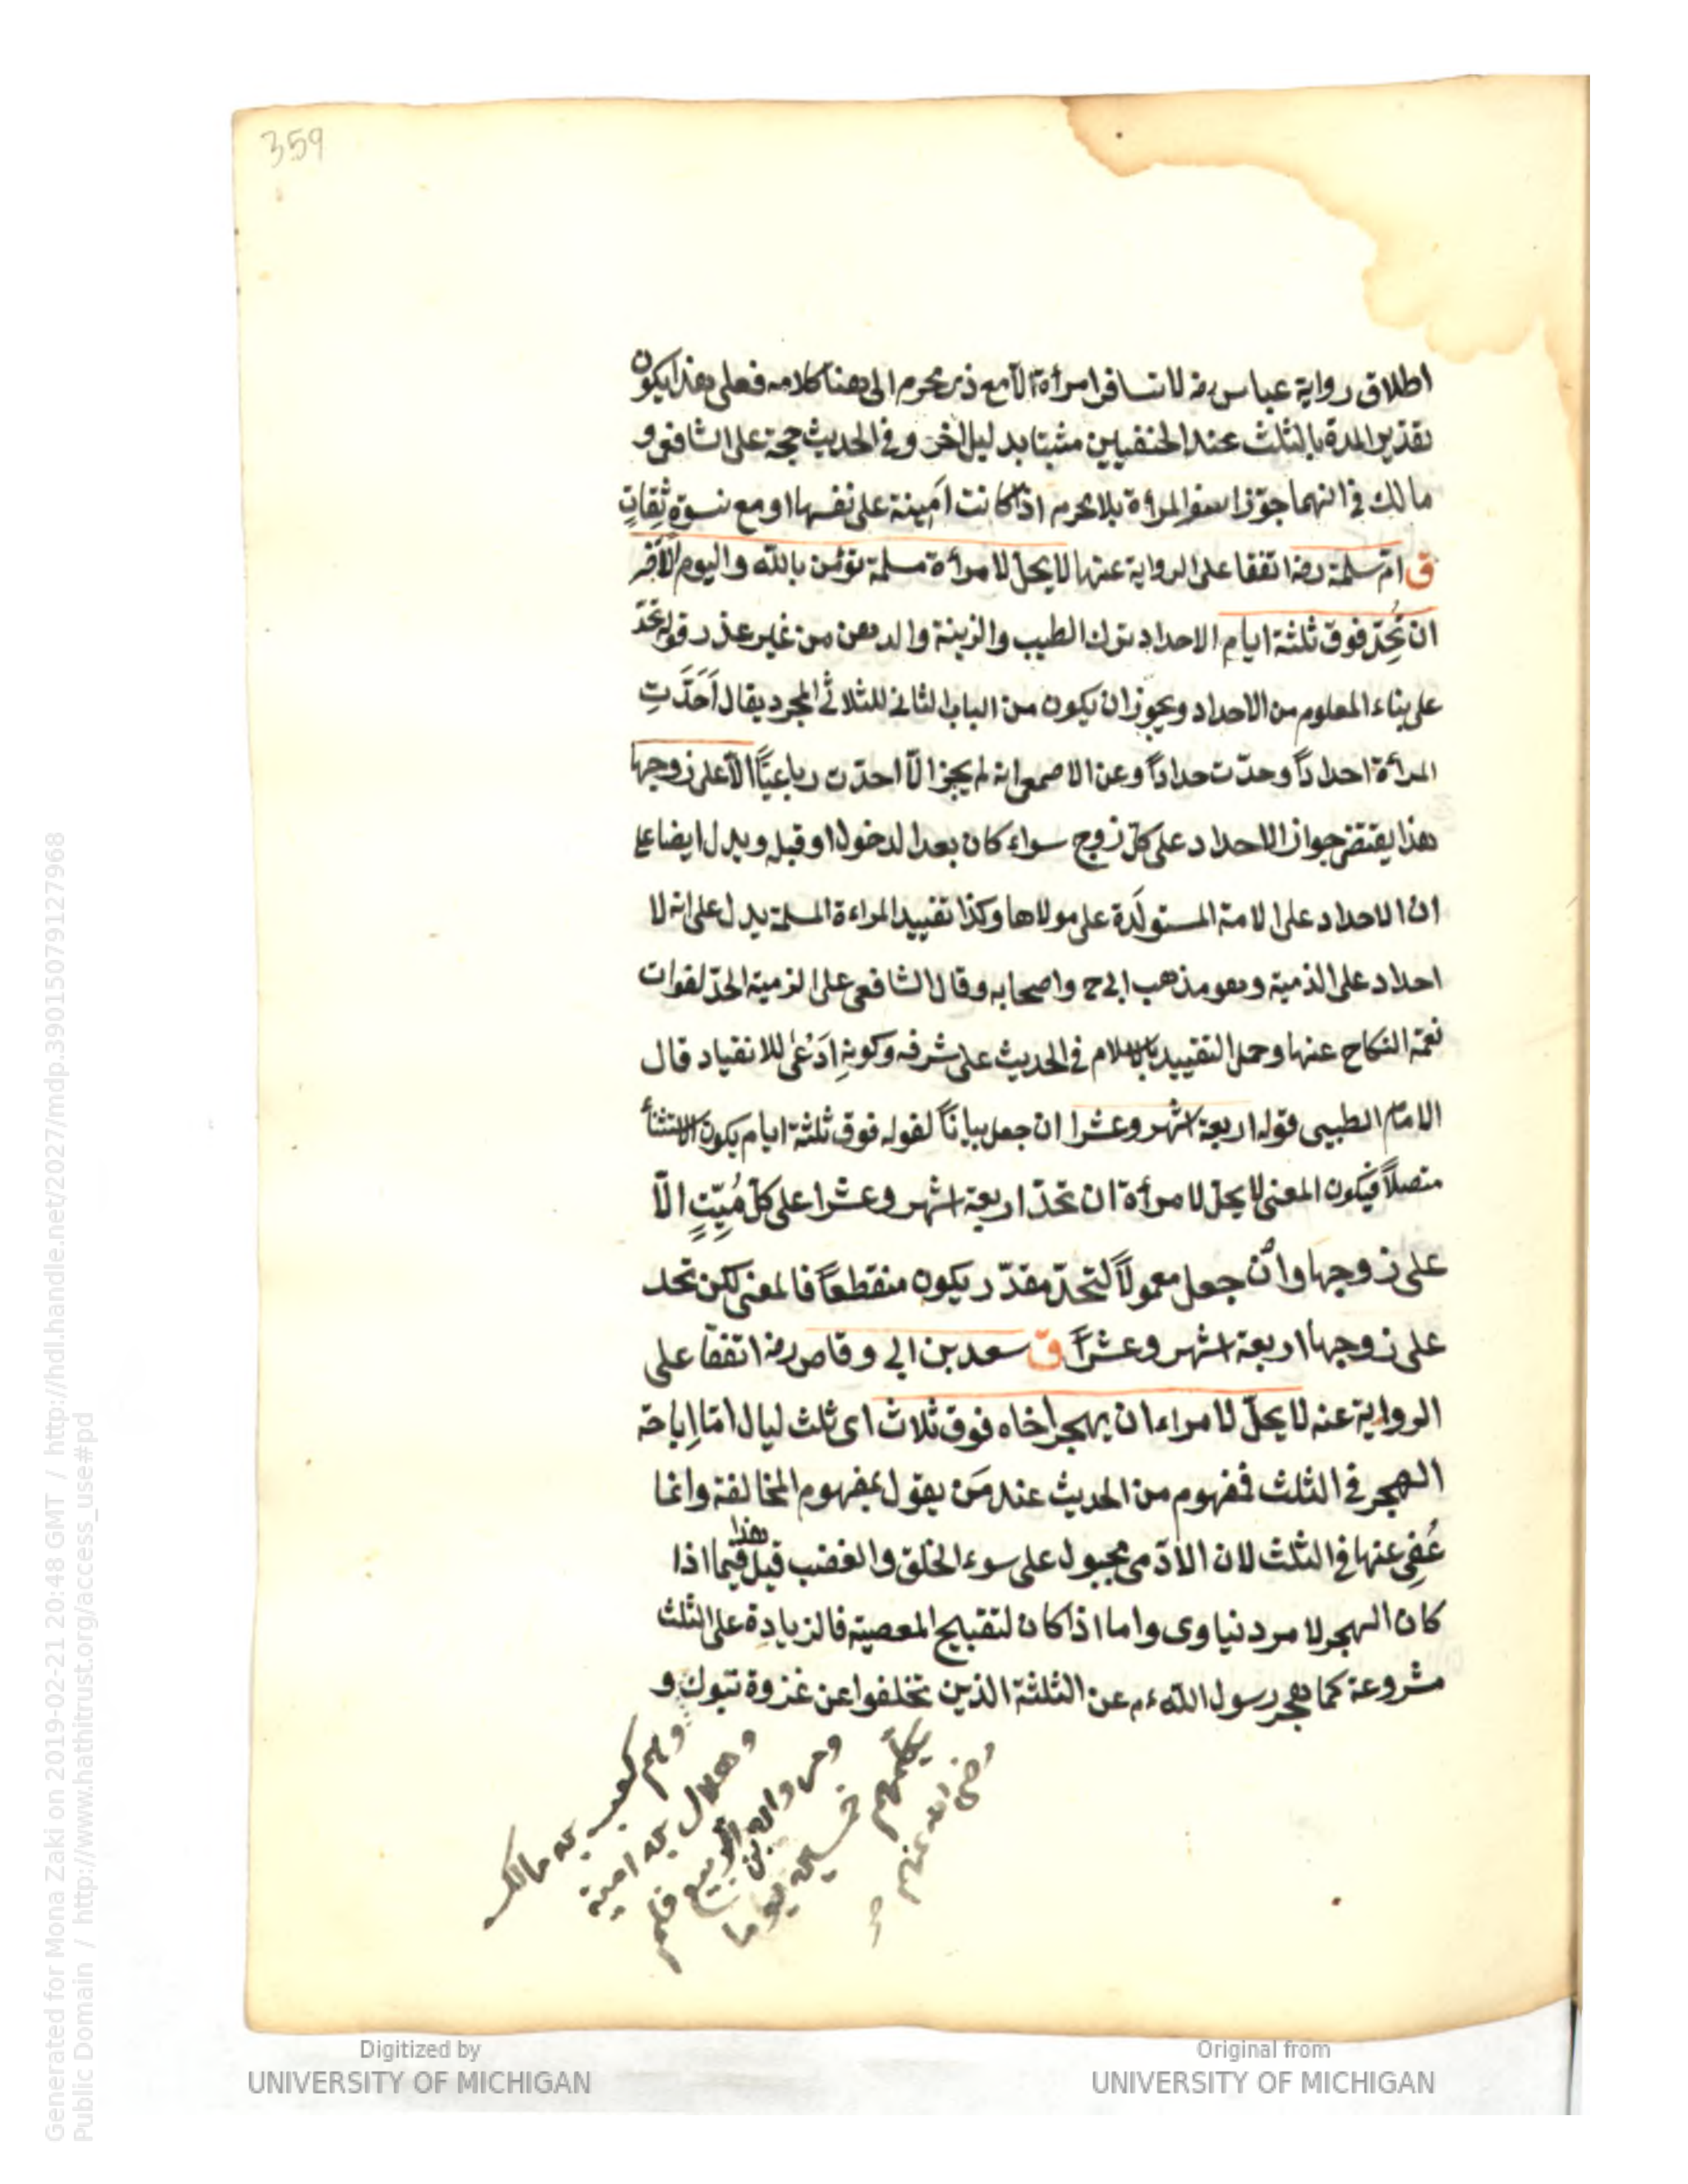 359
اطلاق رواية عباس رضه لا تسافر امرأة الا مع ذى محرم الى هنا كلامه فعلى هذا يكون
تقدير المدة بالثلث عند الحنفيين مثبتا بدليل اخر وفى الحديث حجة على الشافعى و
مالك فى انهما جوّزا سفر المرأة بلا محرم اذا كانت اَمِينة على نفسها او مع نسوة ثِقاتٍ
ق امّ سلمة رضه اتفقا على الرواية عنها لا يحلّ لامرأة مسلمة تؤمن بالله واليوم الآخر
ان تُحِدّ فوق ثلثة ايام الاحداد ترك الطيب والزينة والدهن من غير عذر قوله تحدّ
على بناء المعلوم من الاحداد ويجوز ان يكون من الباب الثانى للثلاثى المجرد يقال اَحَدَّتِ
المرأة احدادًا وحدّت حدادًا وعن الاصمعى انه لم يجز الّا احدّت رباعيًّا الّا على زوجها
هذا يقتضى جواز الاحداد على كلّ زوج سواء كان بعد الدخول او قبله ويدل ايضا على
ان الاحداد على الامة المستولَدة على مولاها وكذا تقييد المراءة المسلمة يدل على انه لا
احداد على الذمية وهو مذهب ابى ح واصحابه وقال الشافعى على الذمية الحدّ لفوات
نعمة النكاح عنها وحمل التقييد بالاسلام فى الحديث على شرفه وكونهِ اَدْعٰى للانقياد قال
الامام الطيبى قوله اربعة اشهر وعشرا ان جعل بيانًا لقوله فوق ثلثة ايام يكون الاستثنأ
متصلًا فيكون المعنى لا يحلّ لامرأة ان تحدّ اربعة اشهر وعشرا على كلّ مُيِّتٍ الّا
على زوجها وان جعل معمولًا لتحدّ مقدّر يكون منقطعًا فالمعنى لكن تحد
على زوجها اربعة اشهر وعشرًا ق سعد بن ابى وقاص رضه اتفقا على
الرواية عنه لا يحلّ لامراء ان يهجر اخاه فوق ثلاث اى ثلث ليال امّا اِباحة
الهجر فى الثلث فمفهوم من الحديث عند مَن يقول بمفهوم المخالفة وانما
عُفِى عنها فى الثلث لان الآدمى مجبول على سوء الخلق والغضب قيل هذا فيما اذا
كان الهجر لامر دنياوى واما اذا كان لتقبيح المعصية فالزيادة على الثلث
مشروعة كما هجر رسول الله ءم عن الثلثة الذين تخلفوا عن غزوة تبوك و
وهم كعب بن مالك
وهلال بن امية
ومروان بن الربيع فلم
يكلمهم خمسين يوما
رضى الله عنهم